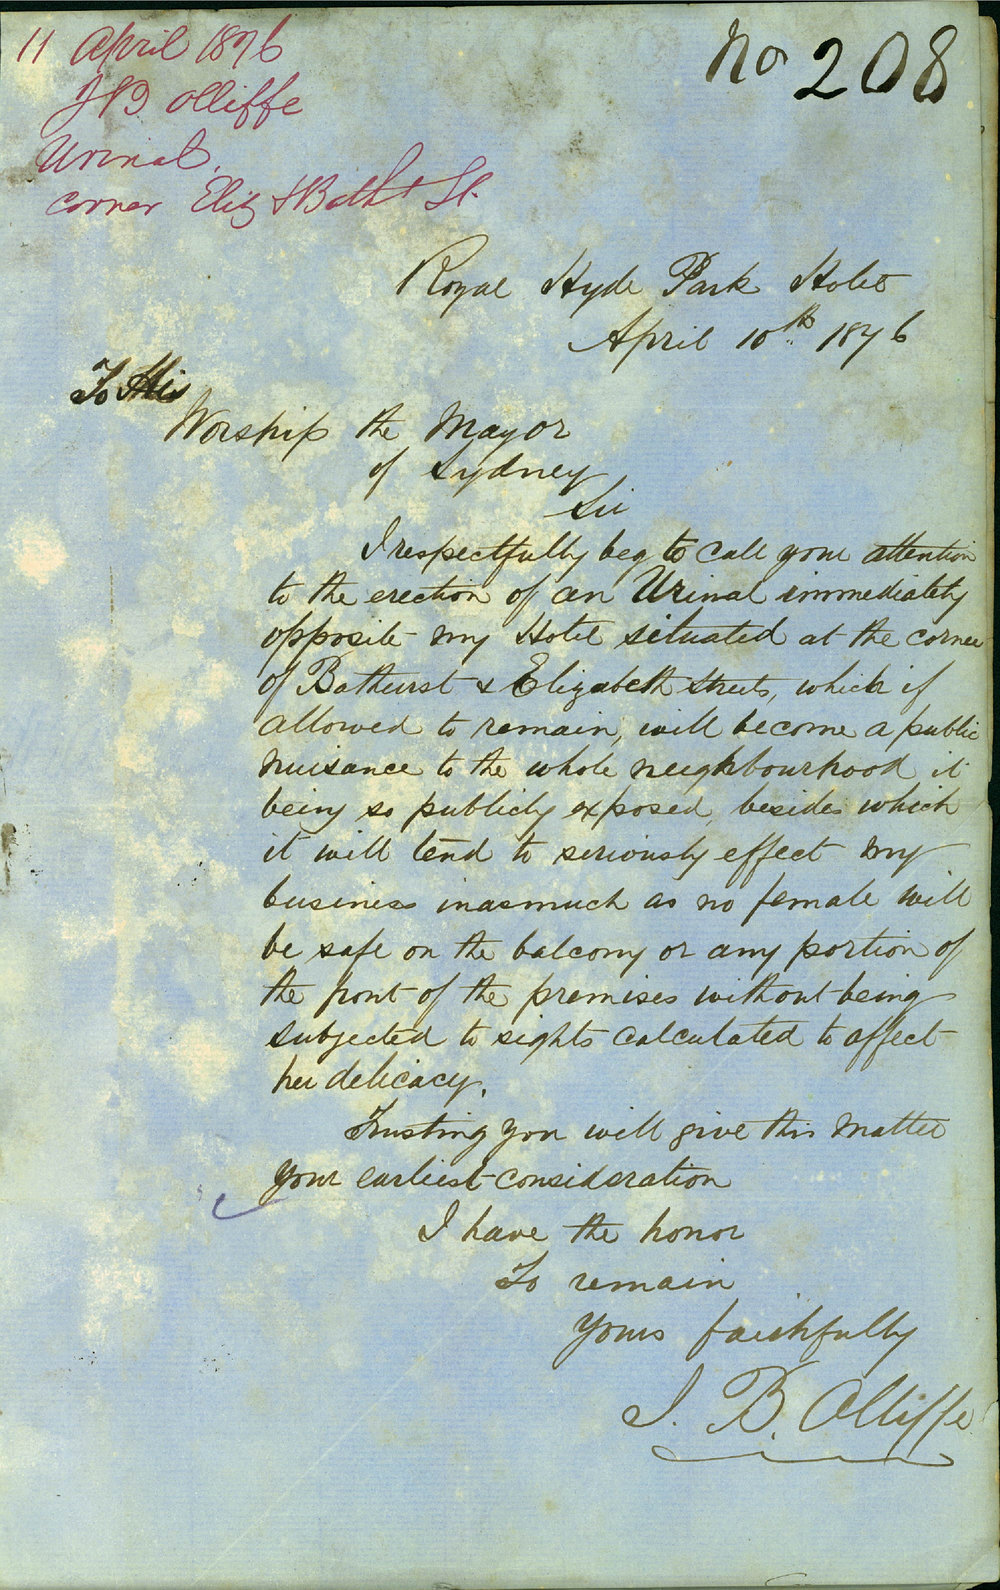 11 April 1876
J B Olliffe
Urinal.
corner Eliz & Batht St.
No 208
Royal Hyde Park Hotel
April 10th 1876
To His
Worship the Mayor
of Sydney
Sir
I respectfully beg to call your attention
to the erection of an Urinal immediately
opposite my Hotel situated at the corner
of Bathurst & Elizabeth Streets, which if
allowed to remain, will become a public
nuisance to the whole neighbourhood it
being so publicly exposed, besides which
it will tend to seriously effect my
business inasmuch as no female will
be safe on the balcony or any portion of
the front of the premises without being
subjected to sights calculated to affect
her delicacy.
Trusting you will give this matter
your earliest consideration
I have the honor
To remain
Yours faithfully
J. B. Olliffe